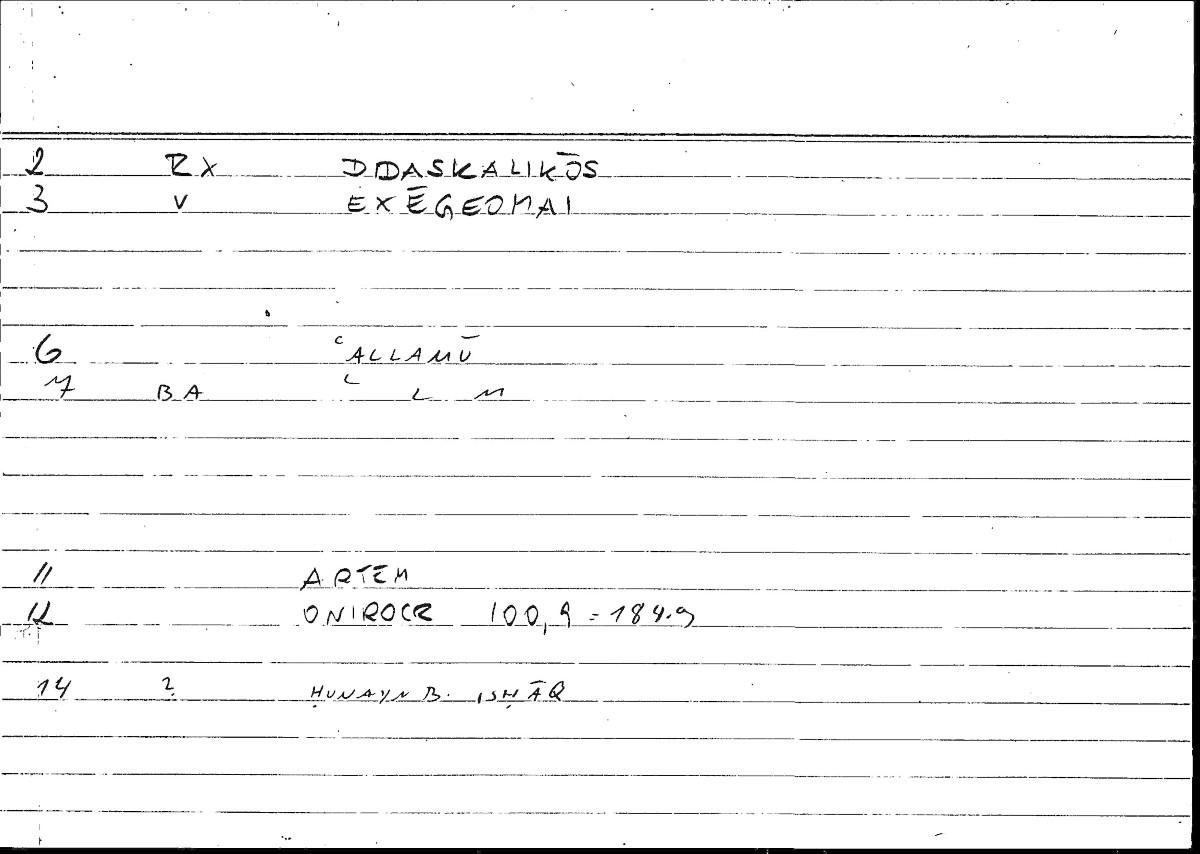 2 RX DIDASKALIKŌS
3 V EXĒGEOMAI
6 ʿALLAMŪ
7 BA ʿ L M
11 ARTEM
12 ONIROCR 100,9 = 184.9
14 2 ḤUNAYN B. ISḤĀQ